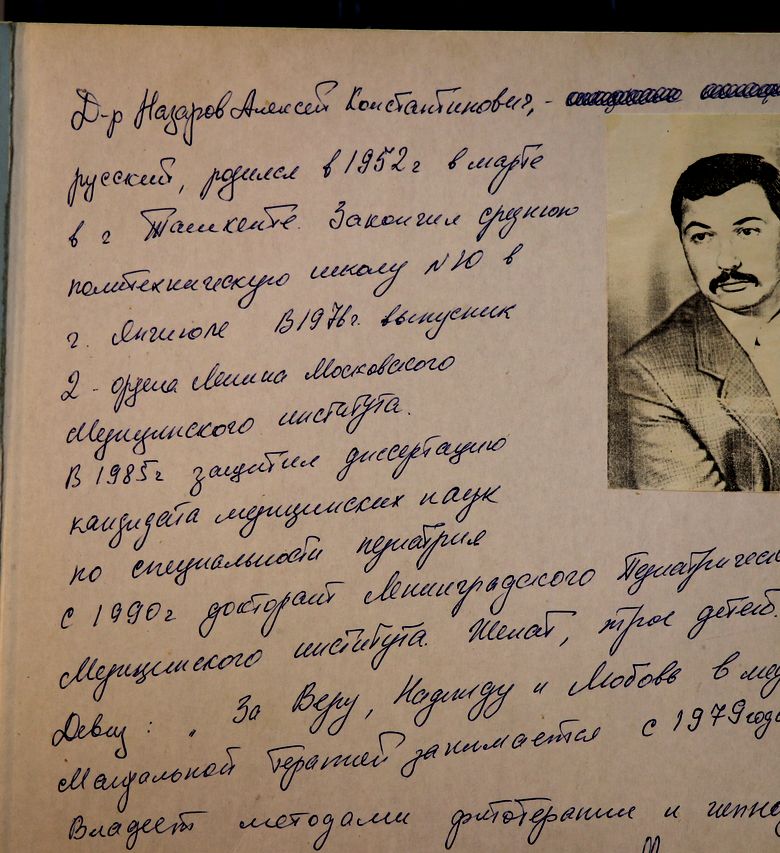 Д-р Назаров Алексей Константинович, -
русский, родился в 1952 г в марте
в г Ташкенте. Закончил среднюю
политехническую школу N 10 в
г. Янгиюле В 1976 г. выпускник
2 - ордена Ленина Московского
Медицинского института.
В 1985 г защитил диссертацию
кандидата медицинских наук
по специальности педиатрия
с 1990 г докторант Ленинградского Педиатрическ
Медицинского института. Женат, трое детей.
Девиз: „ За Веру, Надежду и Любовь в мед
Мануальной терапией занимается с 1979 года
Владеет методами фитотерапии и гипно